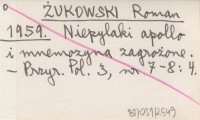 ŻUKOWSKI Roman
1959. Niepylaki apollo
i mnemozyna zagrożone.
– Przyr. Pol. 3, nr 7-8: 4.